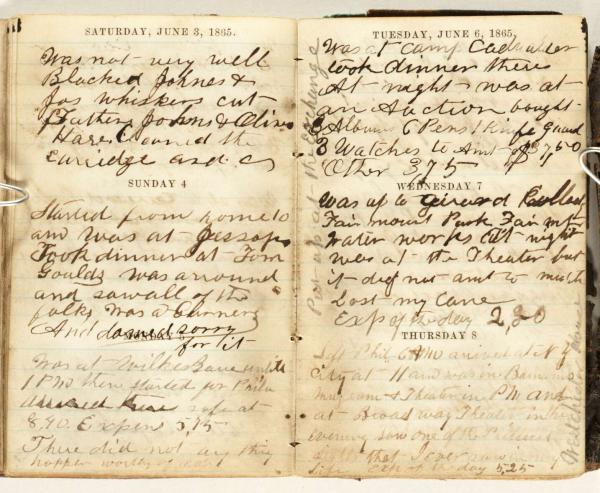 SATURDAY, JUNE 3, 1865.
Was not very well
Blacked Johnes &
Jos whiskers cut
Father Johns & Oliver
Hare Cleaned the
and
SUNDAY 4
Started from home 10
am was at Jessops
Took dinner at Tom
Gouldz was arround
and saw all of the
folks Was
And damed sorry
for it
Was at Wilkes Barre untill
1 PMO then started for Phila
arrived there safe at
8,40. Expen 5,15
There did not any thing
happen worthy of
TUESDAY, JUNE 6, 1865.
Was at Camp Cadwalder
took dinner there
At night was at
an Auction bought
3 Albums 6 Pens 1 Knife Guard
3 Watches to Amt of $31,50
Other 3,75
WEDNESDAY 7
Was up to Girard Colledg
Fair mount Park Fair mt
Water works At night
was at the Theater but
it did not amt to much
Lost my Cane
Exp of the day 2,20
THURSDAY 8
Left Phil 6 AMO arrived at N Y
City at 11 am was in Barnums
Museum & Theater in PM and
at Broadway Theater in the
evening saw one of the Prettiest
that I ever saw in my
life Exp of the day 5,25
Put up at the Exchange
House